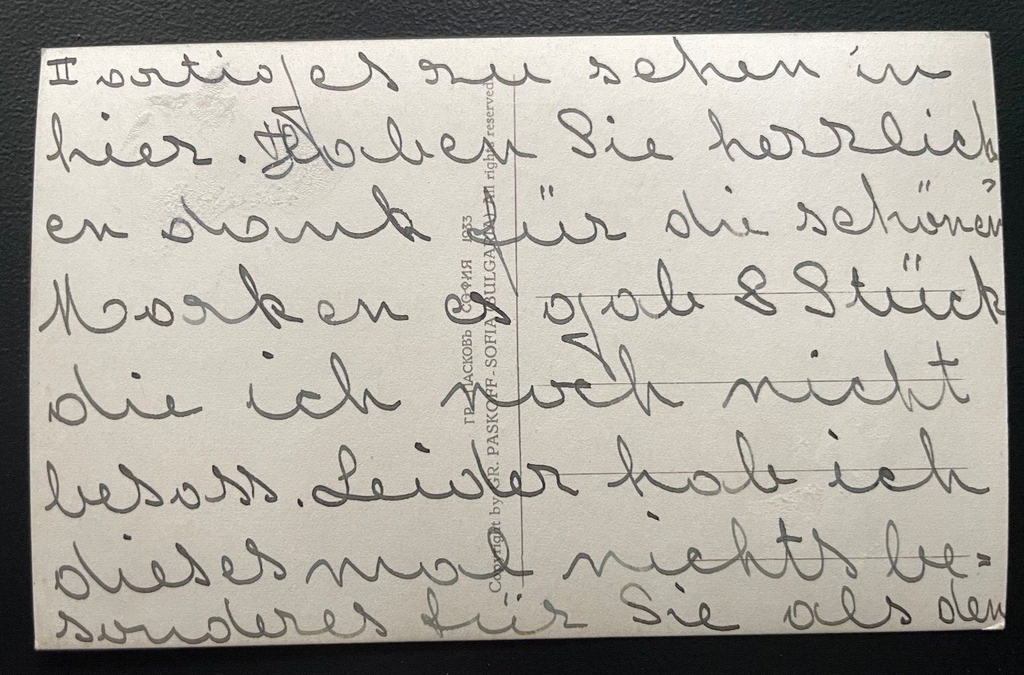 II artiges zu sehen in
hier. Haben Sie herrlich
en dank für die schönen
Marken es gab 8 Stück
die ich noch nicht
besass. Leider hab ich
dieses mal nichts be=
sonderes für Sie als den
ГР. ПАСКОВЪ СОФИЯ 1933
Copyright by GR. PASKOFF - SOFIA (BULGARIA) All rights reserved